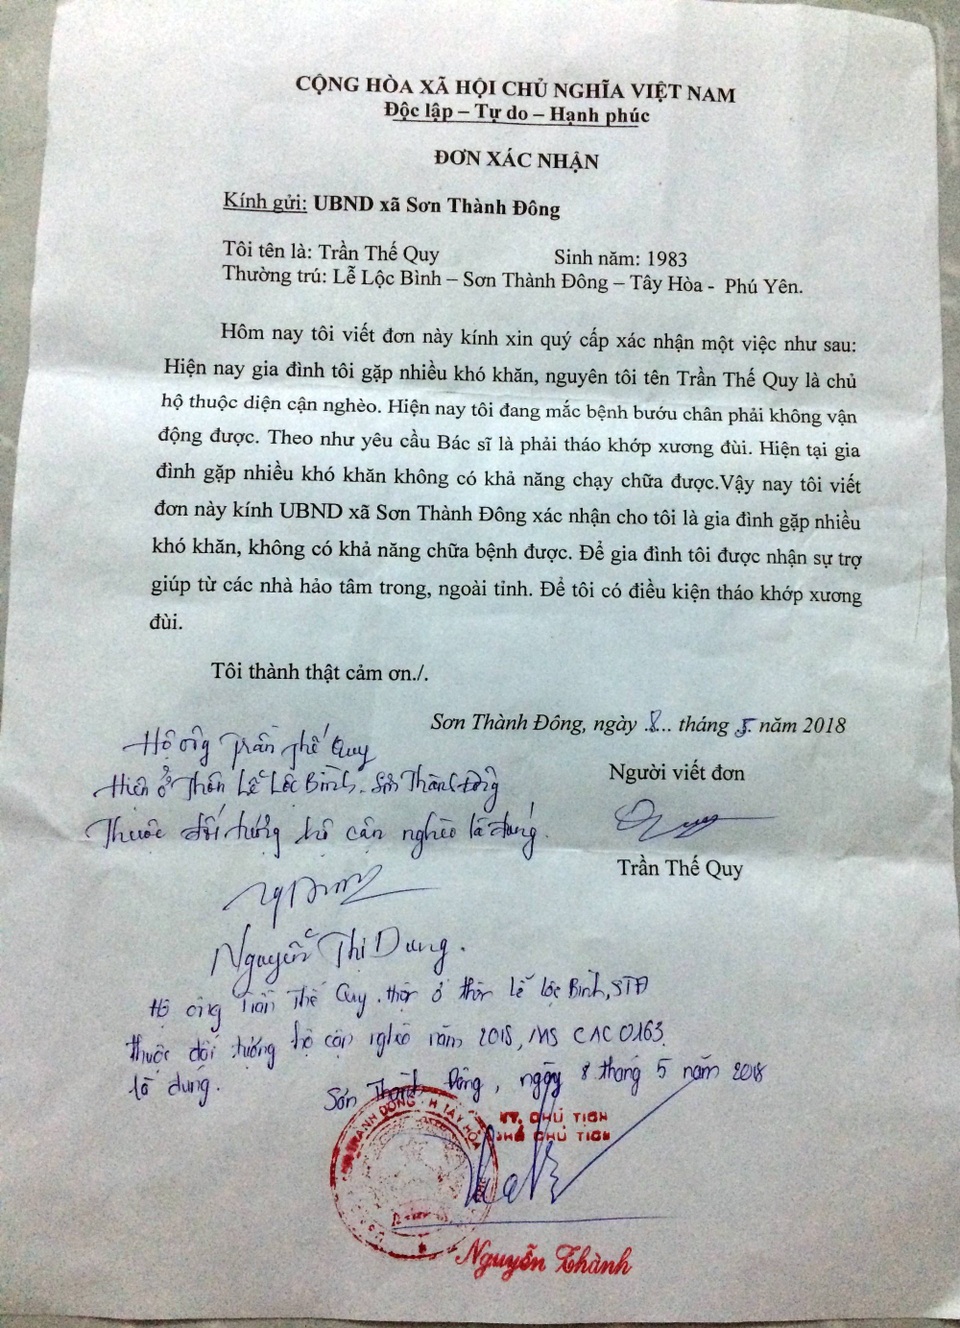 CỘNG HÒA XÃ HỘI CHỦ NGHĨA VIỆT NAM
Độc lập – Tự do – Hạnh phúc
ĐƠN XÁC NHẬN
Kính gửi: UBND xã Sơn Thành Đông
Tôi tên là: Trần Thế Quy Sinh năm: 1983
Thường trú: Lễ Lộc Bình – Sơn Thành Đông – Tây Hòa - Phú Yên.
Hôm nay tôi viết đơn này kính xin quý cấp xác nhận một việc như sau:
Hiện nay gia đình tôi gặp nhiều khó khăn, nguyên tôi tên Trần Thế Quy là chủ
hộ thuộc diện cận nghèo. Hiện nay tôi đang mắc bệnh bướu chân phải không vận
động được. Theo như yêu cầu Bác sĩ là phải tháo khớp xương đùi. Hiện tại gia
đình gặp nhiều khó khăn không có khả năng chạy chữa được.Vậy nay tôi viết
đơn này kính UBND xã Sơn Thành Đông xác nhận cho tôi là gia đình gặp nhiều
khó khăn, không có khả năng chữa bệnh được. Để gia đình tôi được nhận sự trợ
giúp từ các nhà hảo tâm trong, ngoài tỉnh. Để tôi có điều kiện tháo khớp xương
đùi.
Tôi thành thật cảm ơn./.
Sơn Thành Đông, ngày 8... tháng 5. năm 2018
Hộ ông Trần Thế Quy
Người viết đơn
Hiện ở Thôn Lễ Lộc Bình. Sơn Thành Đông
Thuộc đối tượng hộ cận nghèo là đúng.
Quy
Trần Thế Quy
Nguyễn Thị Dung.
Hộ ông Trần Thế Quy. ở thôn Lễ Lộc Bình, STĐ
thuộc đối tượng hộ cận nghèo năm 2018, MS CAC 0163.
là đúng.
Sơn Thành Đông, ngày 8 tháng 5 năm 2018
KT. CHỦ TỊCH
PHÓ CHỦ TỊCH
THÀNH ĐÔNG - H. TÂY HÒA
Nguyễn Thành